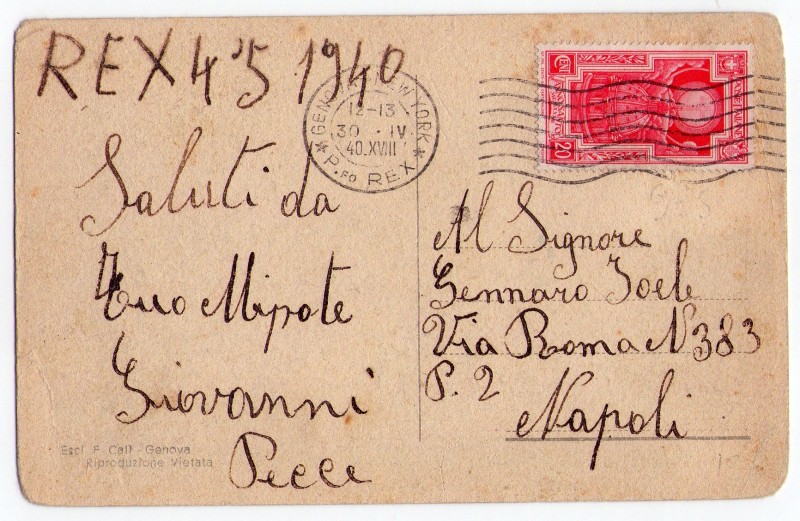 REX 4'5 1940
GENOVA NEW YORK
12-13
30 . IV
40.XVIII
P.FO REX
CENT
20
Saluti da
tuo Nipote
Giovanni
Pecce
Al Signore
Gennaro Ioele
Via Roma N 383
P. 2
Napoli
Escl F. Calì - Genova
Riproduzione Vietata